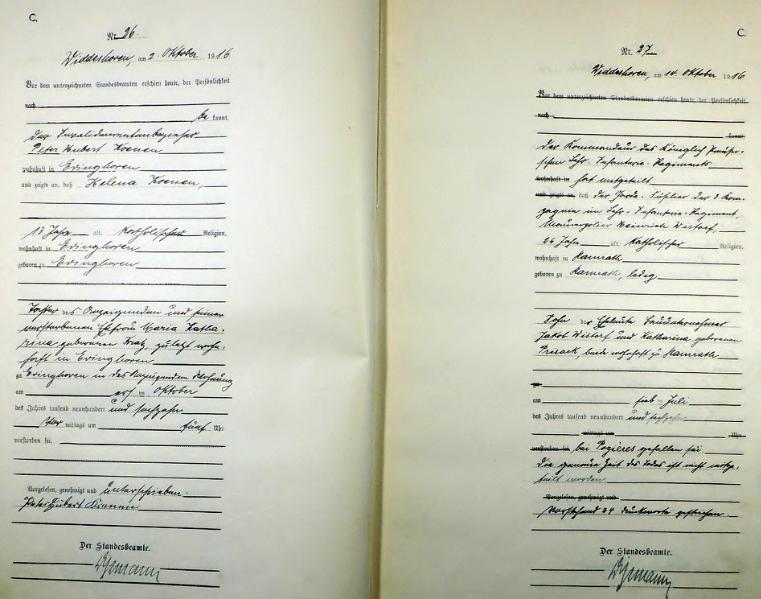 C.
Nr. 26
Widdeshoven, am 2. Oktober 1916
Vor dem unterzeichneten Standesbeamten erschien heute, der Persönlichkeit
nach
be kannt,
der Invalidenrentenbezieher
Peter Hubert Kronen
wohnhaft in Evinghoven
und zeigte an, daß Helena Kronen,
13 Jahre alt, katholischer Religion,
wohnhaft in Evinghoven
geboren zu Evinghoven
Tochter des Anzeigenden und seiner
verstorbenen Ehefrau Maria Katha-
rina geborenen zuletzt wohn-
haft in Evinghoven
zu Evinghoven in des Anzeigenden Wohnung
am Oktober
des Jahres tausend neunhundert und sechzehn
mittags um fünf Uhr
verstorben sei.
Vorgelesen, genehmigt und unterschrieben.
Peter Hubert Kronen
Der Standesbeamte.
C.
Nr. 27
Widdeshoven, am 14. Oktober 1916
Vor dem unterzeichneten Standesbeamten erschien heute, der Persönlichkeit
nach
kannt,
Der Kommandeur des Königlich Preußi-
schen Lehr-Infanterie-Regiments
wohnhaft in hat mitgeteilt
und zeigte an, daß der Garde-Füsilier der 3 Kom-
pagnie im Lehr-Infanterie-Regiment,
Heinrich
26 Jahre alt, katholischer Religion,
wohnhaft in Ramrath
geboren zu Ramrath, ledig,
Sohn der Eheleute
Jakob und Katharina geborenen
beide wohnhaft zu Ramrath
zu
am Juli
des Jahres tausend neunhundert und sechzehn
mittags um Uhr
verstorben sei bei Pozieres gefallen sei
Die genaue Zeit des Todes ist nicht mitge-
teilt worden.
Vorgelesen, genehmigt und
Vorstehend 24 Druckworte gestrichen.
Der Standesbeamte.